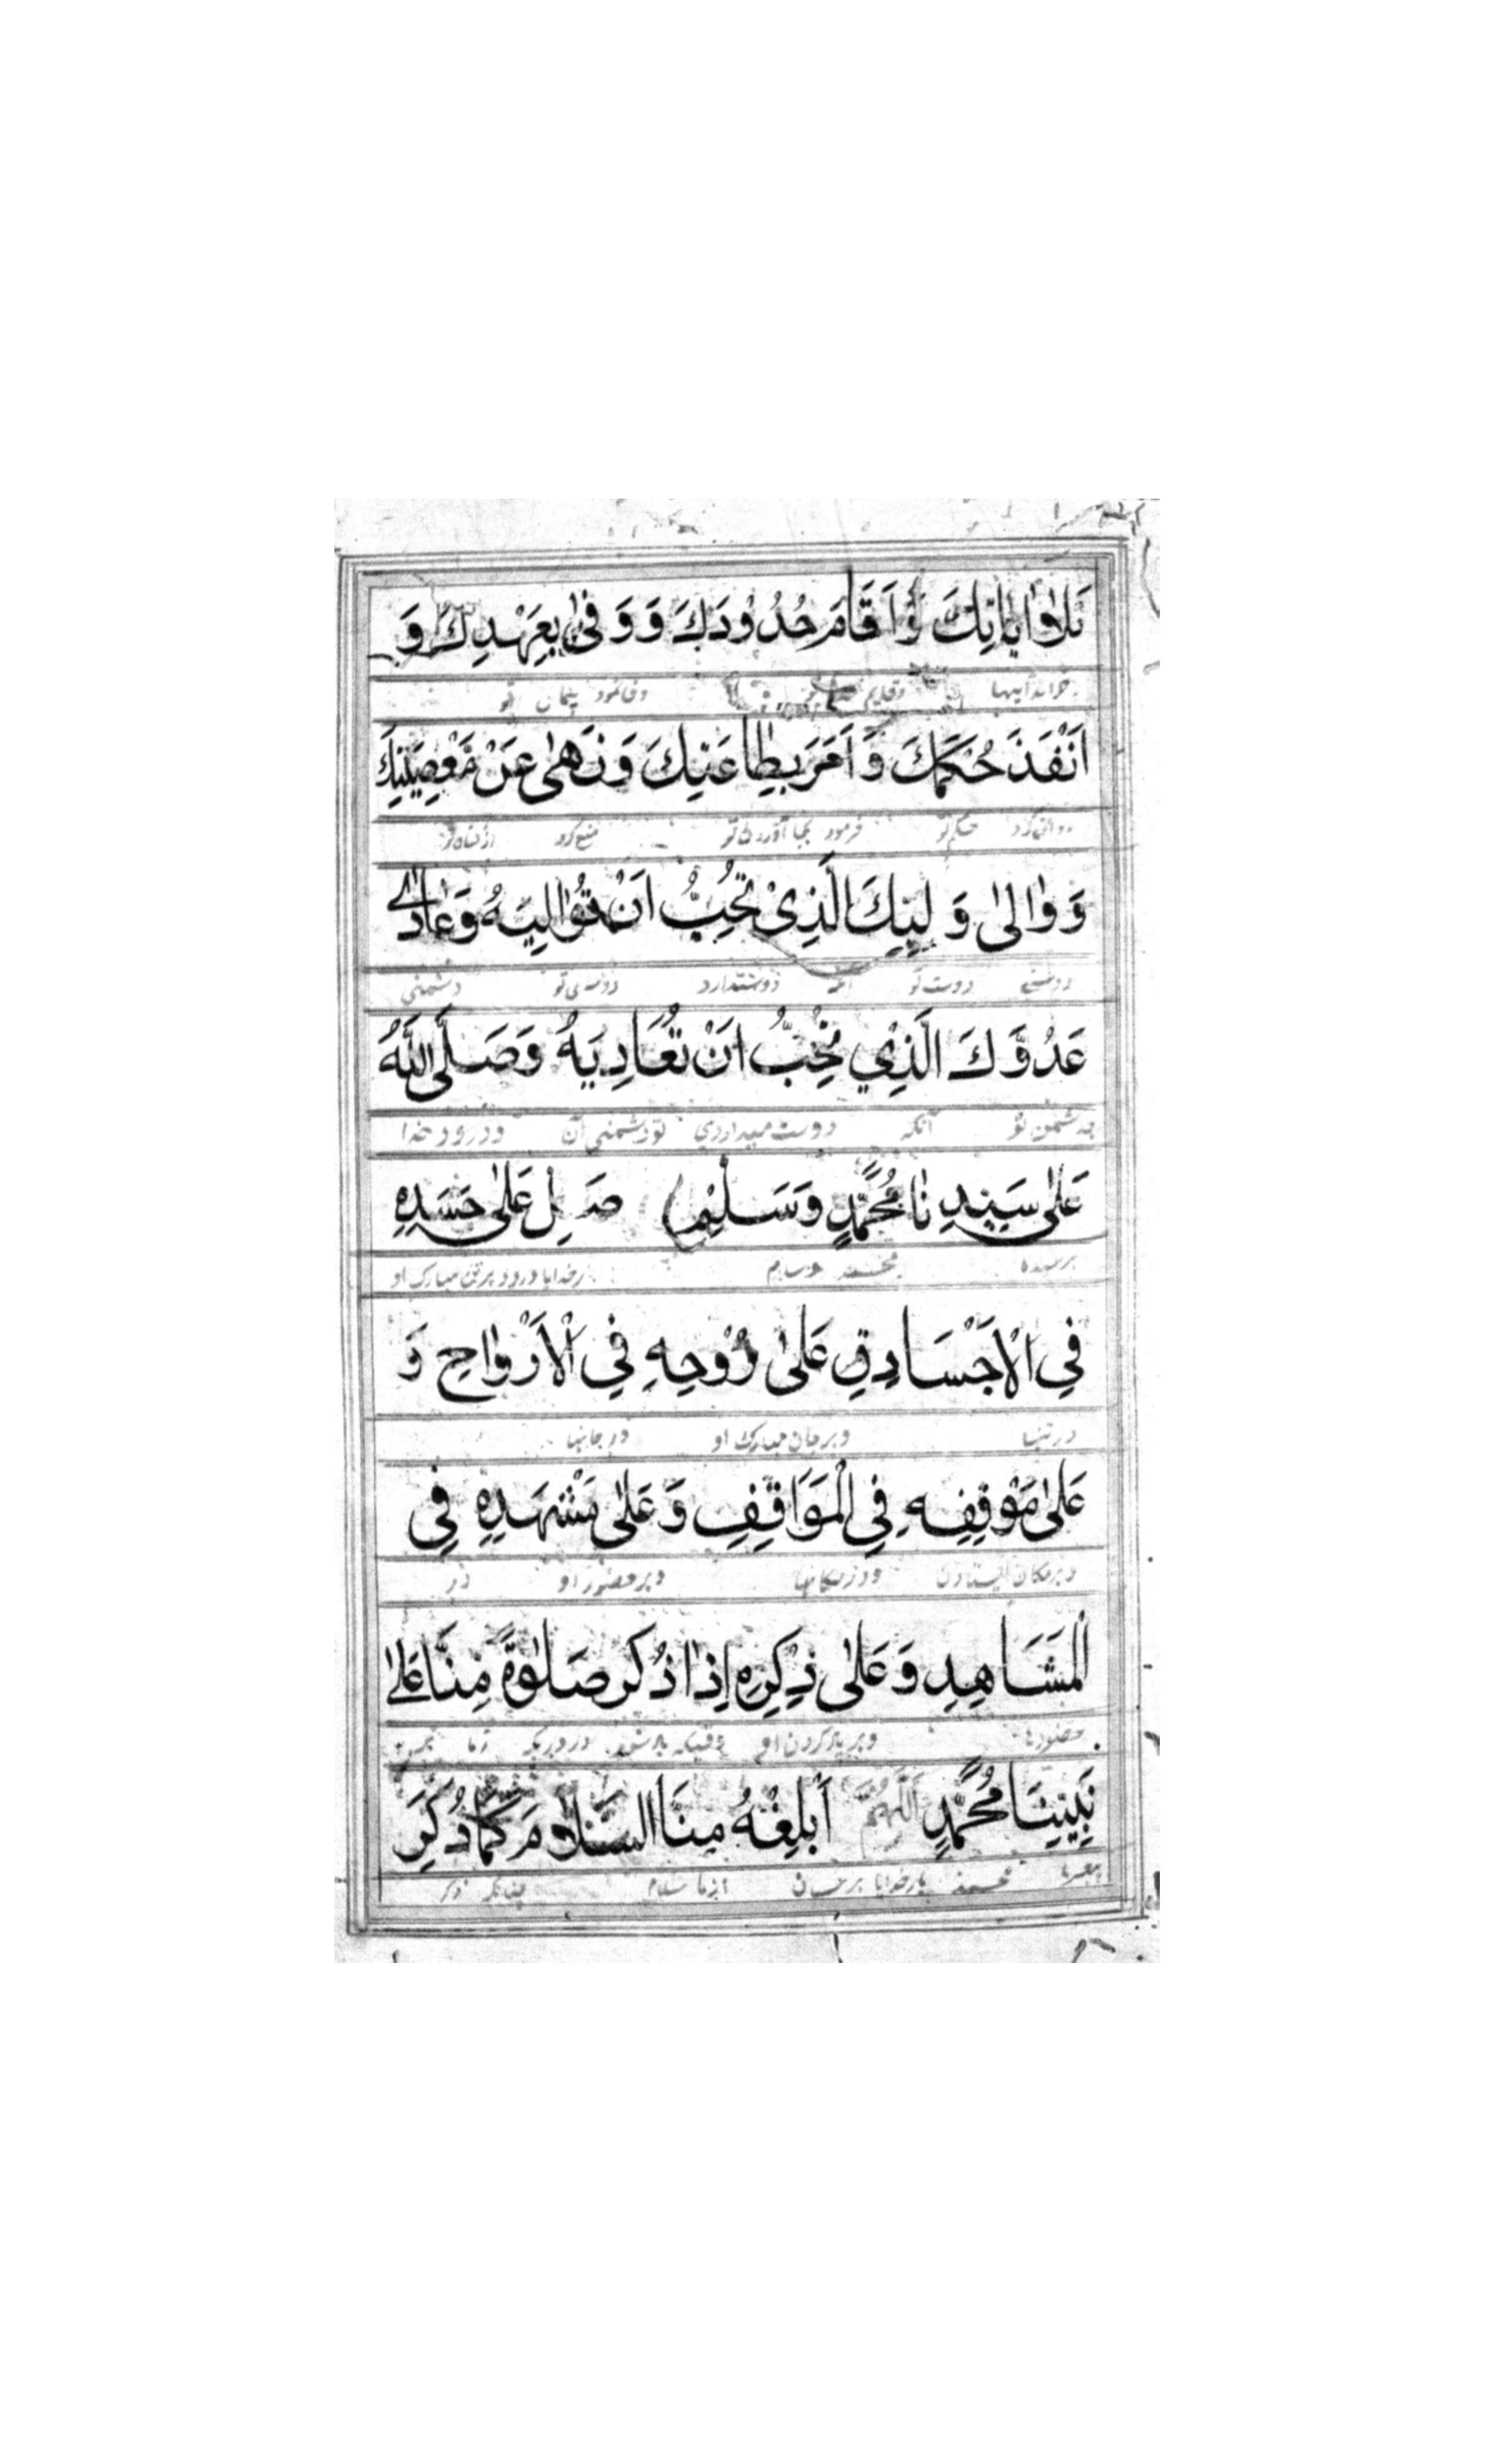 تَلَاوَاٰيَاتِكَ وَاَقَامَ حُدُوْدَكَ وَ وَفٰى بِعَهْدِكَ وَ
وفانمود پیمان تو
اَنْفَذَ حُكْمَكَ وَاَمَرَ بِطَاعَتِكَ وَنَهٰى عَنْ مَّعْصِيَتِكَ
حکم تو فرمود بجا آوردن تو منع کرد از گناه تو
وَ وَالٰى وَلِيَّكَ الَّذِيْ تُحِبُّ اَنْ تُوَالِيَهُ وَعَادٰى
دوست تو دوستدارد دوستی تو دشمنی
عَدُوَّكَ الَّذِيْ تُحِبُّ اَنْ تُعَادِيَهُ وَصَلَّى اللّٰهُ
به دشمن تو آنکه دوست میداردی تو دشمنی آن ودرود خدا
عَلٰى سَيِّدِنَا مُحَمَّدٍ وَسَلِّمْ صَلِّ عَلٰى جَسَدِهٖ
محمد وسلام بارخدایا درود بر تن مبارک او
فِي الْاَجْسَادِ وَ عَلٰى رُوْحِهٖ فِي الْاَرْوَاحِ وَ
در تنها وبر جان مبارک او در جانها
عَلٰى مَوْقِفِهٖ فِي الْمَوَاقِفِ وَ عَلٰى مَشْهَدِهٖ فِي
وبر مکان ایستادن ودر مکانها وبر حضور او در
الْمَشَاهِدِ وَ عَلٰى ذِكْرِهٖ اِذَا ذُكِرَ صَلٰوةً مِنَّا عَلٰى
حضورها وبر یاد کردن او
نَبِيِّنَا مُحَمَّدٍ اَللّٰهُمَّ اَبْلِغْهُ مِنَّا السَّلَامَ كَمَا ذُكِرَ
محمد بارخدایا برسان از ما سلام چنانکه ذکر